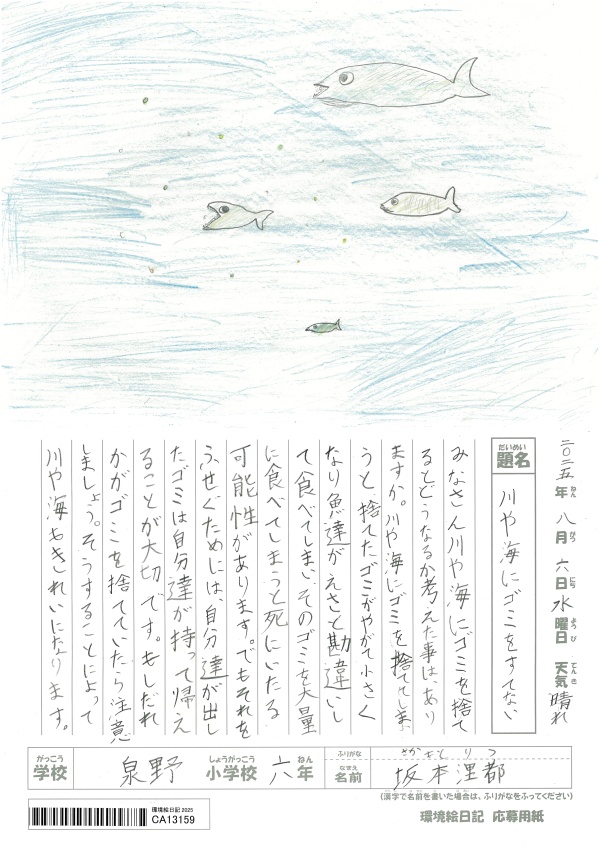 二〇二五年八月六日水曜日 天気晴れ
ねん がつ にち ようび てんき
だいめい
題名
川や海にゴミをすてない
みなさん川や海にゴミを捨て
るとどうなるか考えた事は、あり
ますか。川や海にゴミを捨ててしま
うと捨てたゴミがやがて小さく
なり魚達がえさと勘違いし
て食べてしまい、そのゴミを大量
に食べてしまうと死にいたる
可能性があります。でもそれを
ふせぐためには、自分達が出し
たゴミは自分達が持って帰え
ることが大切です。もしだれ
かがゴミを捨てていたら注意
しましょう。そうすることによって
川や海もきれいになります。
がっこう しょうがっこう ねん ふりがな さかもと りつ
学校 泉野 小学校 六年 なまえ 名前 坂本浬都
(漢字で名前を書いた場合は、ふりがなをふってください)
環境絵日記 2025
CA13159
環境絵日記 応募用紙